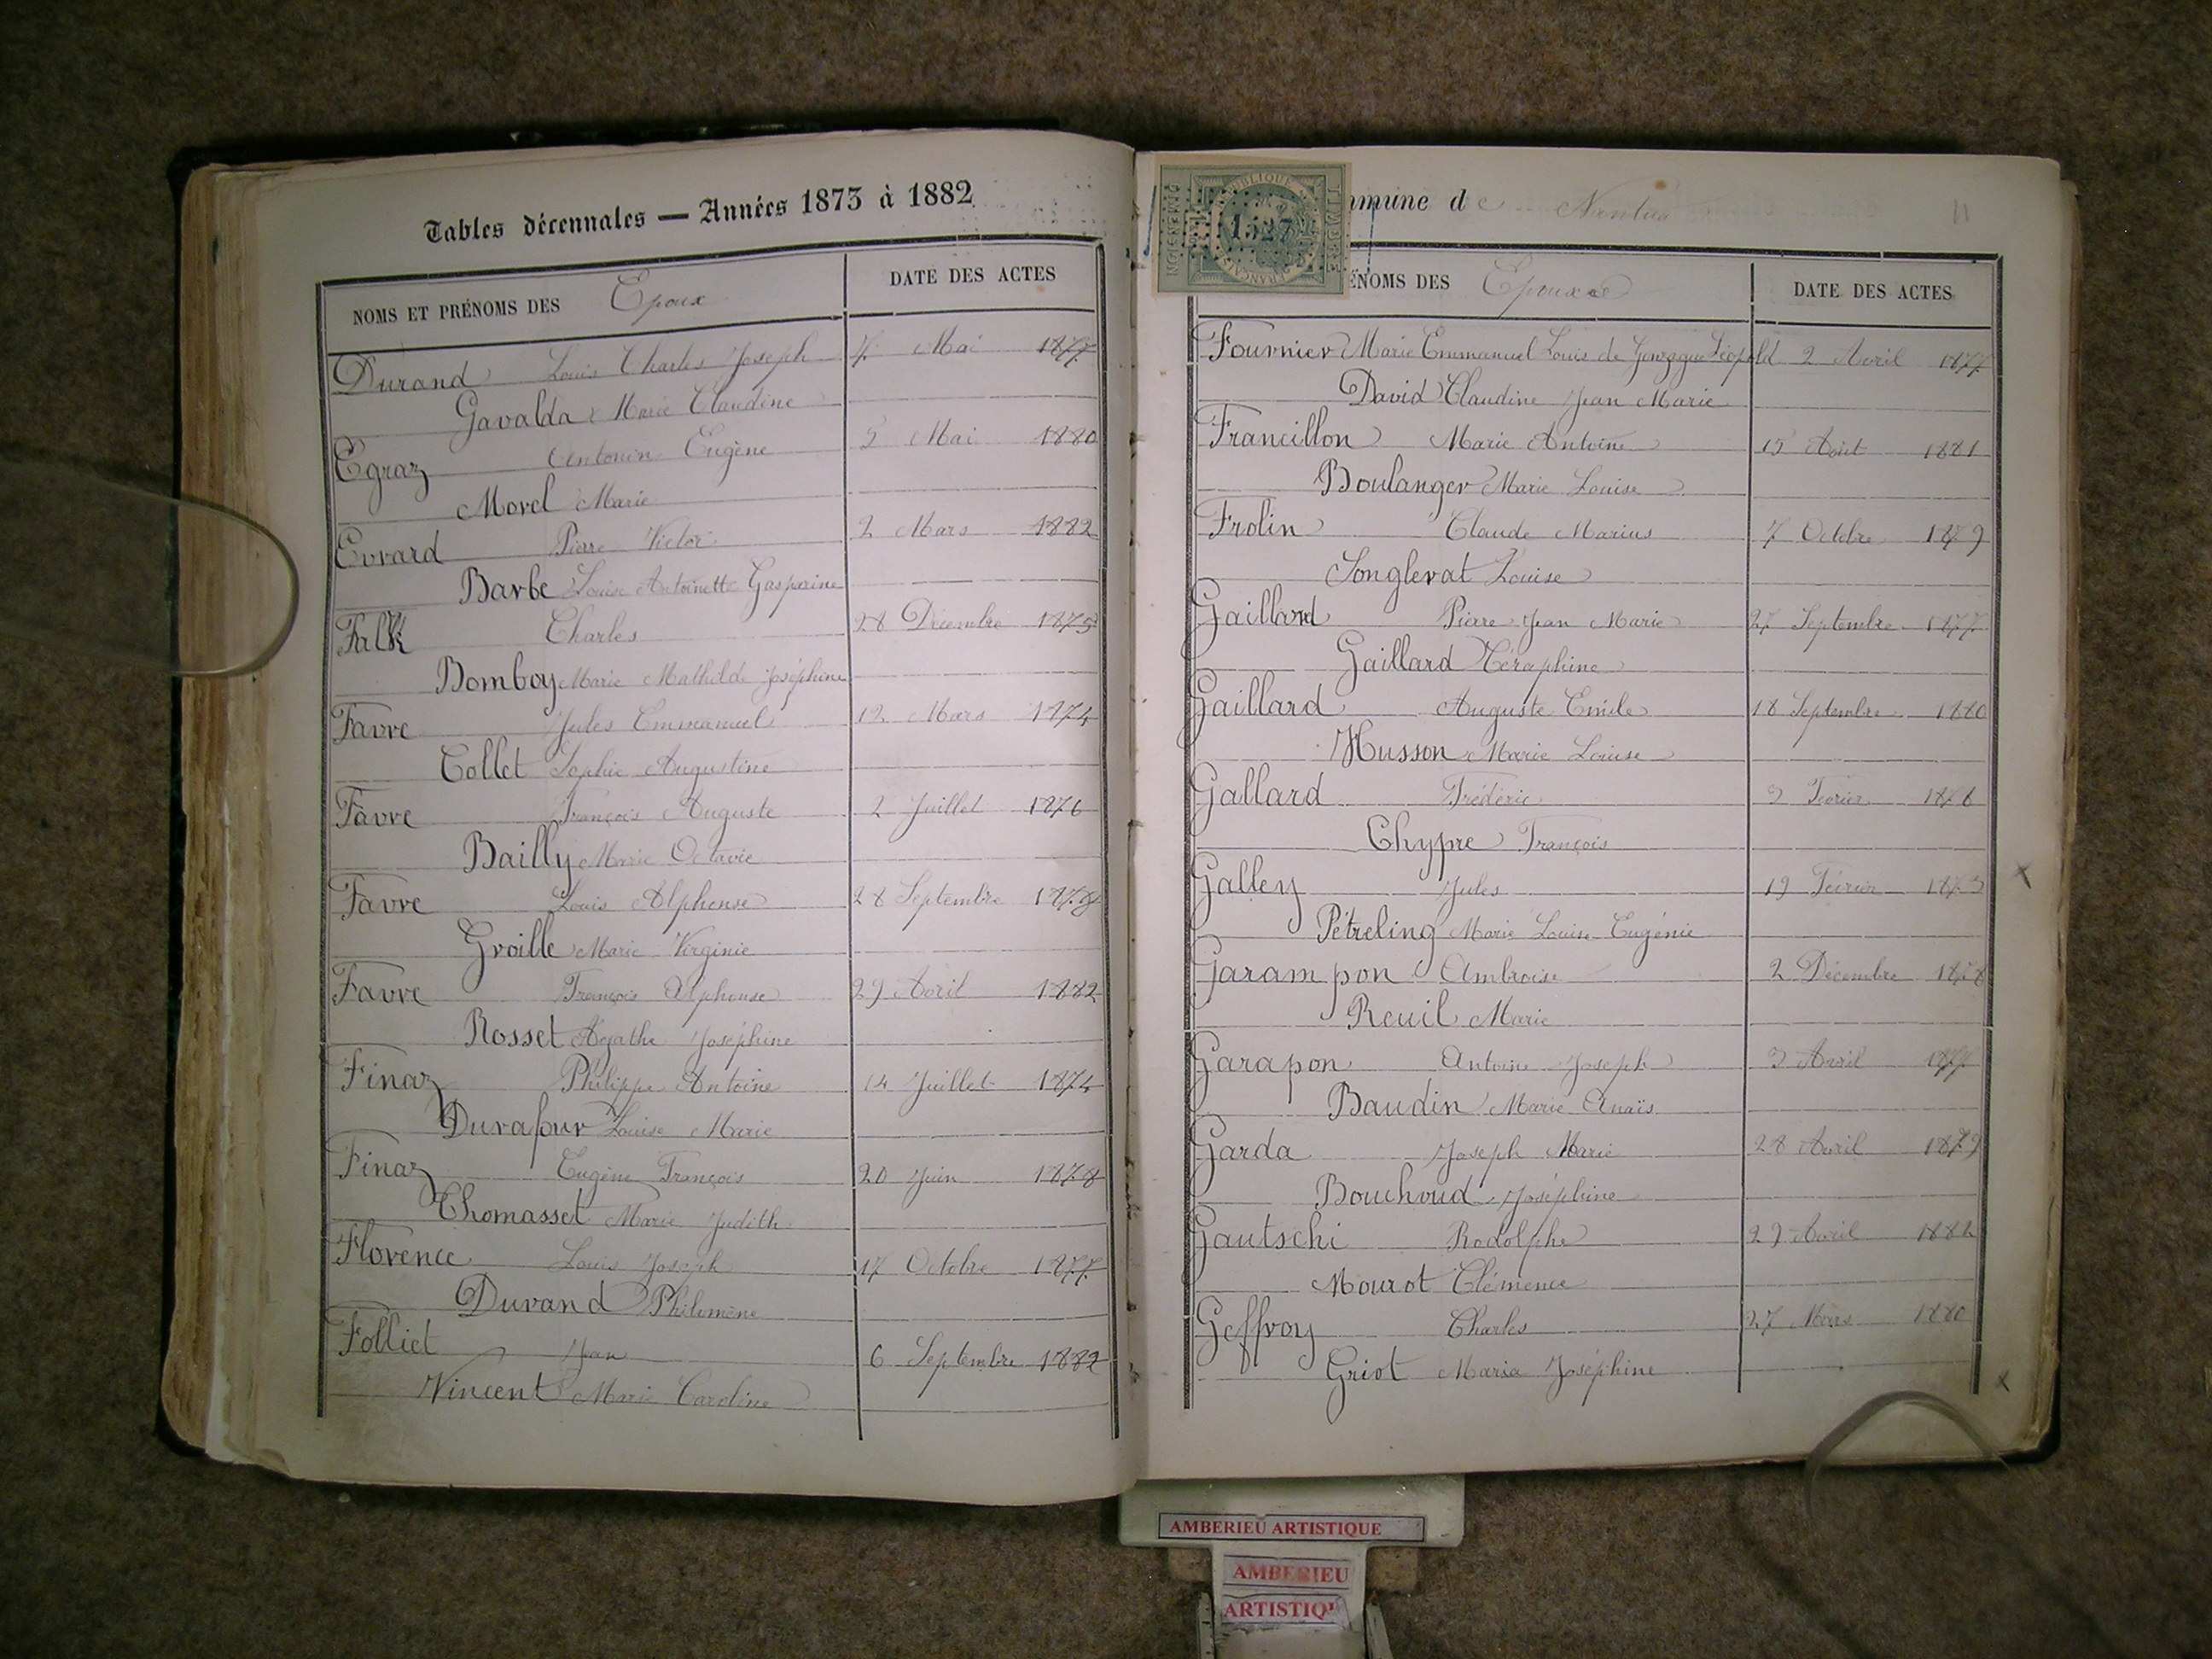 Tables décennales — Années 1873 à 1882
NOMS ET PRÉNOMS DES Epoux DATE DES ACTES
Durand Louis Charles Joseph 7 Mai 1877
Gavalda Marie Claudine
Egraz Antonin Eugène 5 Mai 1880
Morel Marie
Evrard Pierre Victor 2 Mars 1882
Barbe Louise Antoinette Gasparine
Falk Charles 28 Décembre 1875
Bomboy Marie Mathilde Joséphine
Favre Jules Emmanuel 12 Mars 1874
Collet Sophie Augustine
Favre François Auguste 2 Juillet 1876
Bailly Marie Octavie
Favre Louis Alphonse 28 Septembre 1878
Groille Marie Virginie
Favre François Alphonse 29 Avril 1882
Rosset Agathe Joséphine
Finaz Philippe Antoine 14 Juillet 1874
Durafour Louise Marie
Finaz Eugène François 20 Juin 1878
Thomasset Marie Judith
Florence Louis Joseph 17 Octobre 1877
Durand Philomène
Folliet Jean 6 Septembre 1882
Vincent Marie Caroline
mmune de Nantua 11
1527
ÉNOMS DES Epoux DATE DES ACTES
Fournier Marie Emmanuel Louis de Gonzague Léopold 2 Avril 1877
David Claudine Jean Marie
Francillon Marie Antoine 15 Août 1881
Boulanger Marie Louise
Frolin Claude Marius 7 Octobre 1879
Songlerat Louise
Gaillard Pierre Jean Marie 27 Septembre 1877
Gaillard Séraphine
Gaillard Auguste Emile 18 Septembre 1880
Husson Marie Louise
Gallard Frédéric 3 Février 1876
Chypre François
Galley Jules 19 Février 1873
Pétreling Marie Louise Eugénie
Garampon Ambroise 2 Décembre 1878
Reuil Marie
Garapon Antoine Joseph 3 Avril 1877
Baudin Marie Anaïs
Garda Joseph Marie 28 Avril 1879
Bouchoud Joséphine
Gautschi Rodolphe 29 Avril 1882
Mourot Clémence
Geffroy Charles 27 Mars 1880
Griot Maria Joséphine
AMBERIEU ARTISTIQUE
AMBERIEU
ARTISTIQU